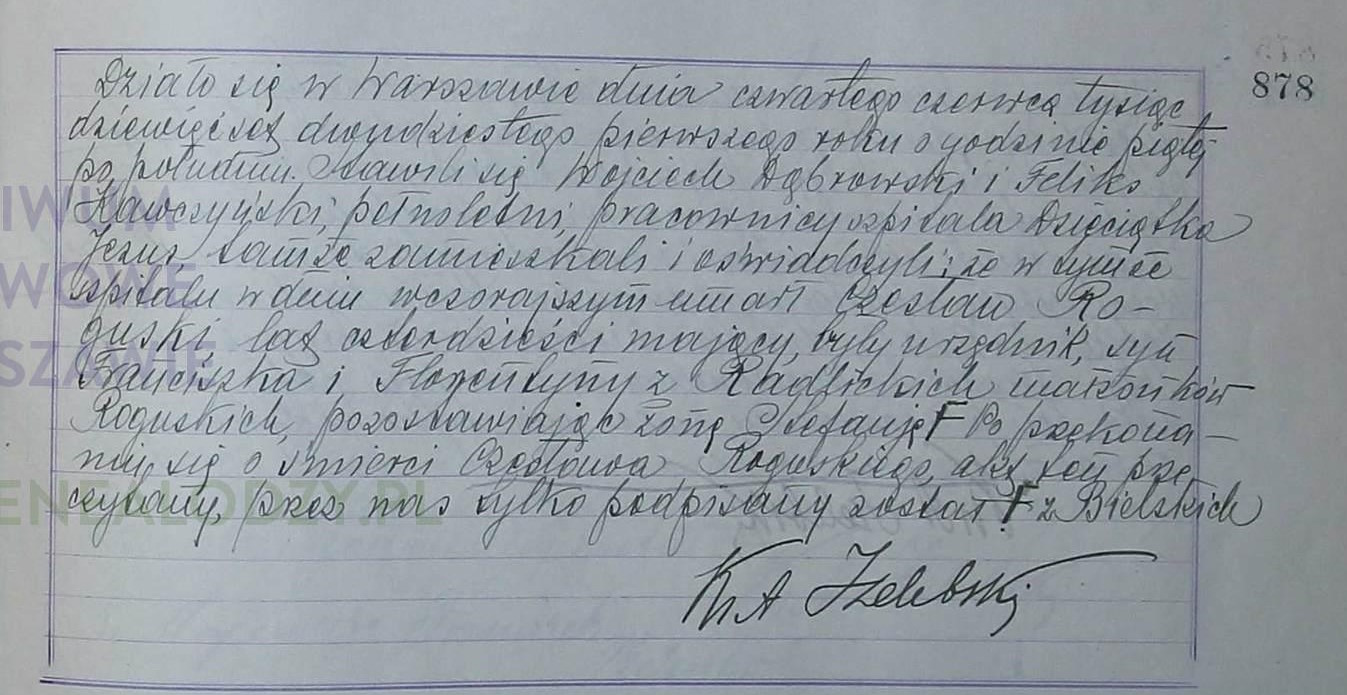 878
Działo się w Warszawie dnia czwartego czerwca tysiąc
dziewięćset dwudziestego pierwszego roku o godzinie piątej
po południu. Stawili się Wojciech Dąbrowski i Feliks
Kawczyński, pełnoletni, pracownicy szpitala Dzieciątka
Jezus tamże zamieszkali i oświadczyli; że w tymże
szpitalu w dniu wczorajszym umarł Czesław Ro-
guski, lat czterdzieści mający, były urzędnik, syn
Franciszka i Florentyny z Radlickich małżonków
Roguskich, pozostawiając żonę Stefanję F Po przekona-
niu się o śmierci Czesława Roguskiego, akt ten prze
czytany, przez nas tylko podpisany został F z Bielskich
IWUM
WOWE
SZAWIE
ENEALODZY.PL